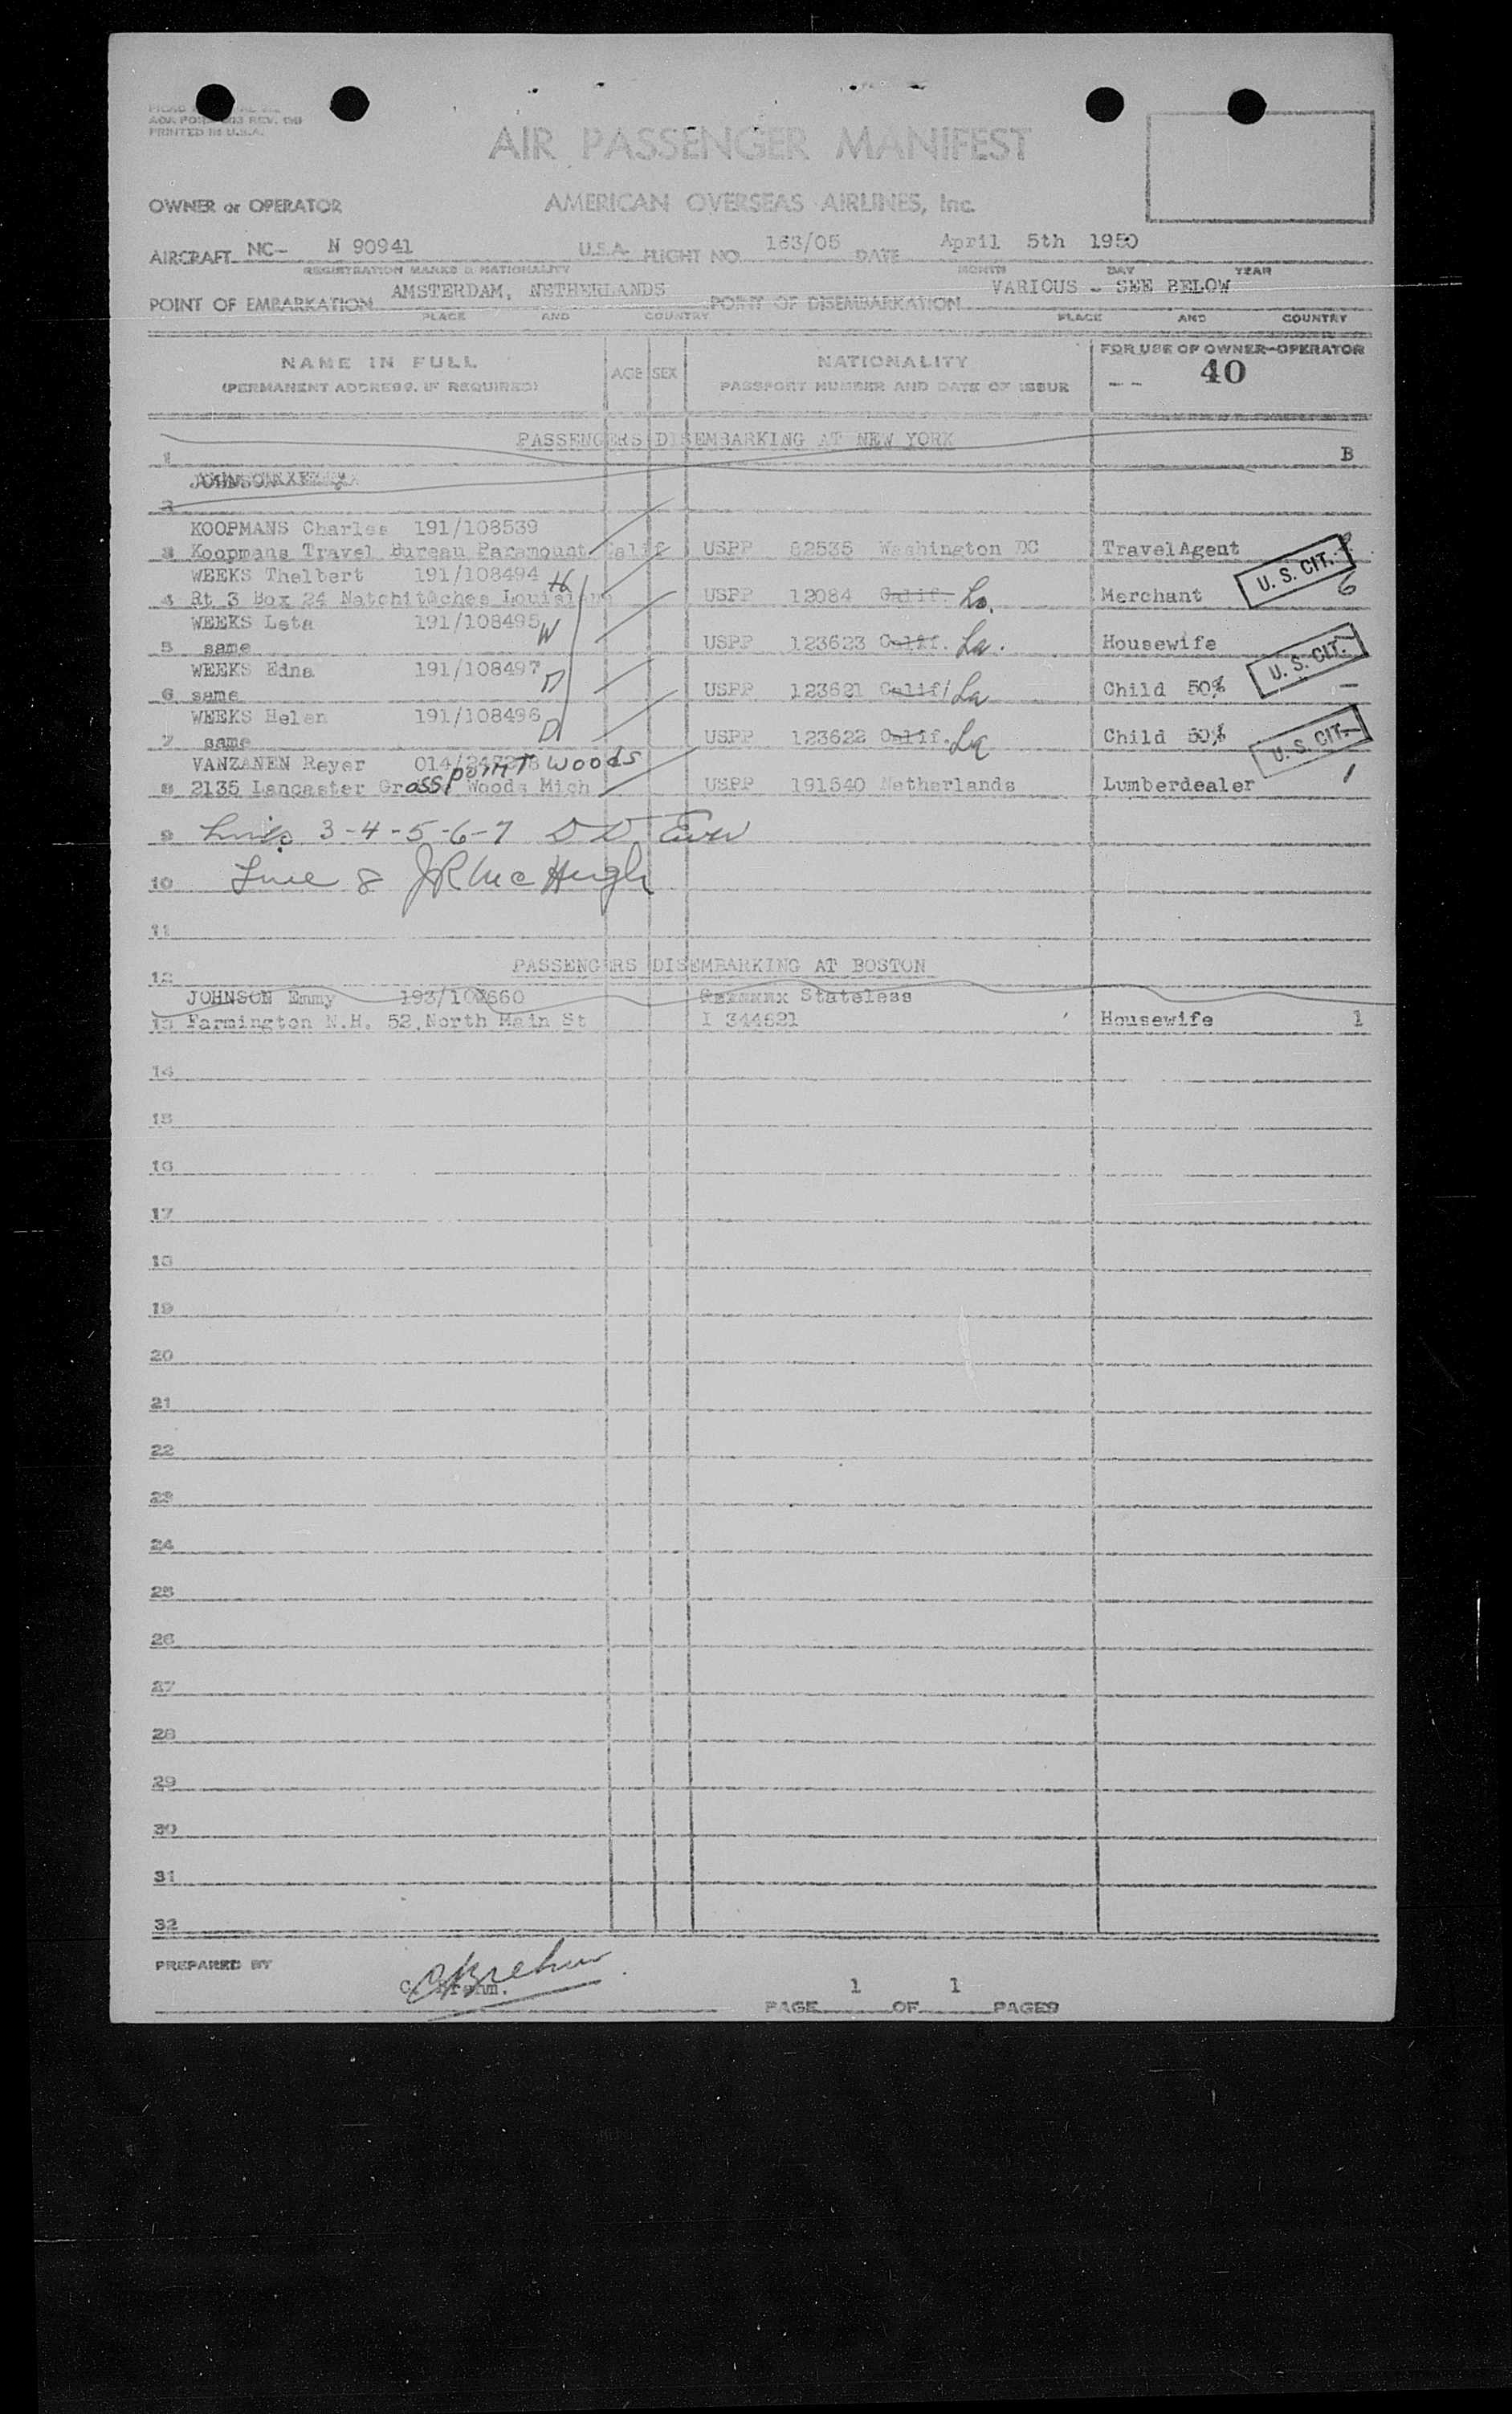 PRINTED IN U.S.A.
AIR PASSENGER MANIFEST
OWNER or OPERATOR AMERICAN OVERSEAS AIRLINES, Inc.
AIRCRAFT NC- N 90941 U.S.A. FLIGHT NO. 163/05 DATE April 5th 1950
REGISTRATION MARKS & NATIONALITY MONTH DAY YEAR
POINT OF EMBARKATION AMSTERDAM, NETHERLANDS POINT OF DISEMBARKATION VARIOUS - SEE BELOW
PLACE AND COUNTRY PLACE AND COUNTRY
NAME IN FULL AGE SEX NATIONALITY FOR USE OF OWNER-OPERATOR
(PERMANENT ADDRESS, IF REQUIRED) PASSPORT NUMBER AND DATE OF ISSUE -- 40
PASSENGERS DISEMBARKING AT NEW YORK
1 B
2
KOOPMANS Charles 191/108539
3 Koopmans Travel Bureau Paramount Calif USPP 82535 Washington DC TravelAgent
U. S. CIT.
WEEKS Thelbert 191/108494 H
4 Rt 3 Box 24 Natchitoches Louisiana USPP 12084 Calif. La. Merchant 6
WEEKS Leta 191/108495 W
5 same USPP 123623 Calif. La. Housewife
U. S. CIT.
WEEKS Edna 191/108497 D
6 same USPP 123621 Calif La Child 50% -
WEEKS Helen 191/108496 D
7 same USPP 123622 Calif. La Child 50%
U. S. CIT.
VANZANEN Reyer 014/ poinT Woods
8 2135 Lancaster Grosse Woods Mich USPP 191540 Netherlands Lumberdealer 1
9 Lines 3-4-5-6-7
10 Line 8 JR McHugh
11
PASSENGERS DISEMBARKING AT BOSTON
12
JOHNSON Emmy Stateless
13 Farmington N.H. 52 North Main St I 344621 Housewife 1
14
15
16
17
18
19
20
21
22
23
24
25
26
27
28
29
30
31
32
PREPARED BY
C. Brehm.
PAGE 1 OF 1 PAGES